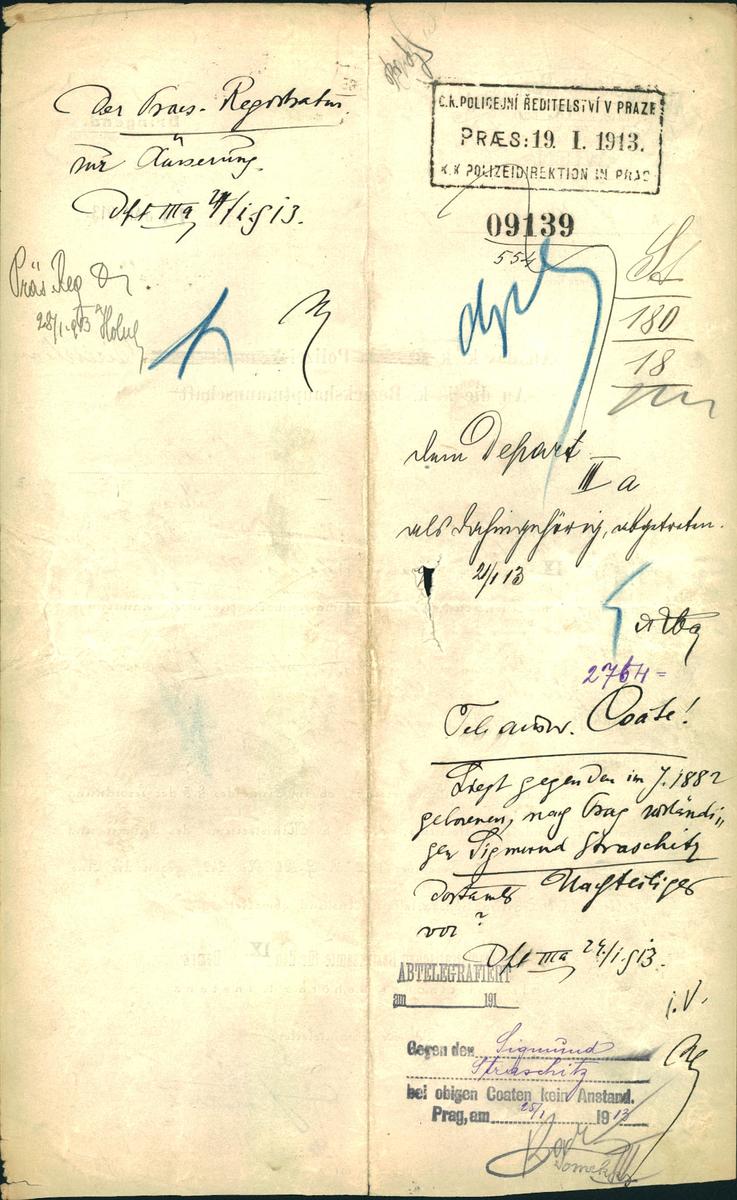 Der Praes. Registratur
zur Äusserung.
Dft IIIa 24/1 913.
Präs. Reg
28/1 913 Holub
C.K. POLICEJNÍ ŘEDITELSTVÍ V PRAZE
PRÆS: 19. I. 1913.
K.K POLIZEIDIREKTION IN PRAG
09139
554
St
180
18
dem Depart
III a
als dahingehörig, abgetreten.
21/1 13
2764
Coate!
Liegt gegen den im J. 1882
geborenen, nach Prag zuständi„
gen Sigmund Straschitz
dortamts Nachteiliges
vor?
Dft IIIa 24/1 913.
i.V.
ABTELEGRAFIERT
am 191
Gegen den Sigmund
Straschitz
bei obigen Coaten kein Anstand.
Prag, am 25/1 1913